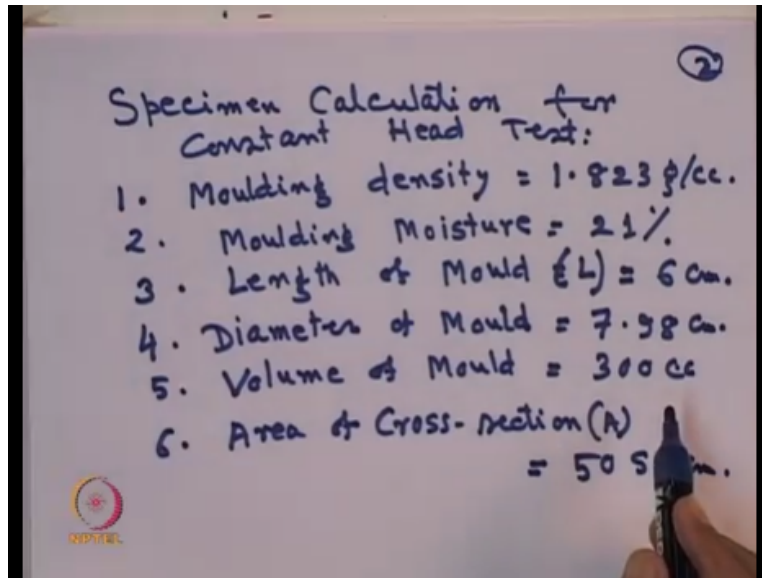 2
Specimen Calculation for
Constant Head Test:
1. Moulding density = 1.823 g/cc.
2. Moulding Moisture = 21%
3. Length of Mould (L) = 6 cm.
4. Diameter of Mould = 7.98 cm.
5. Volume of Mould = 300 cc
6. Area of Cross-section (A)
= 50 S
NPTEL